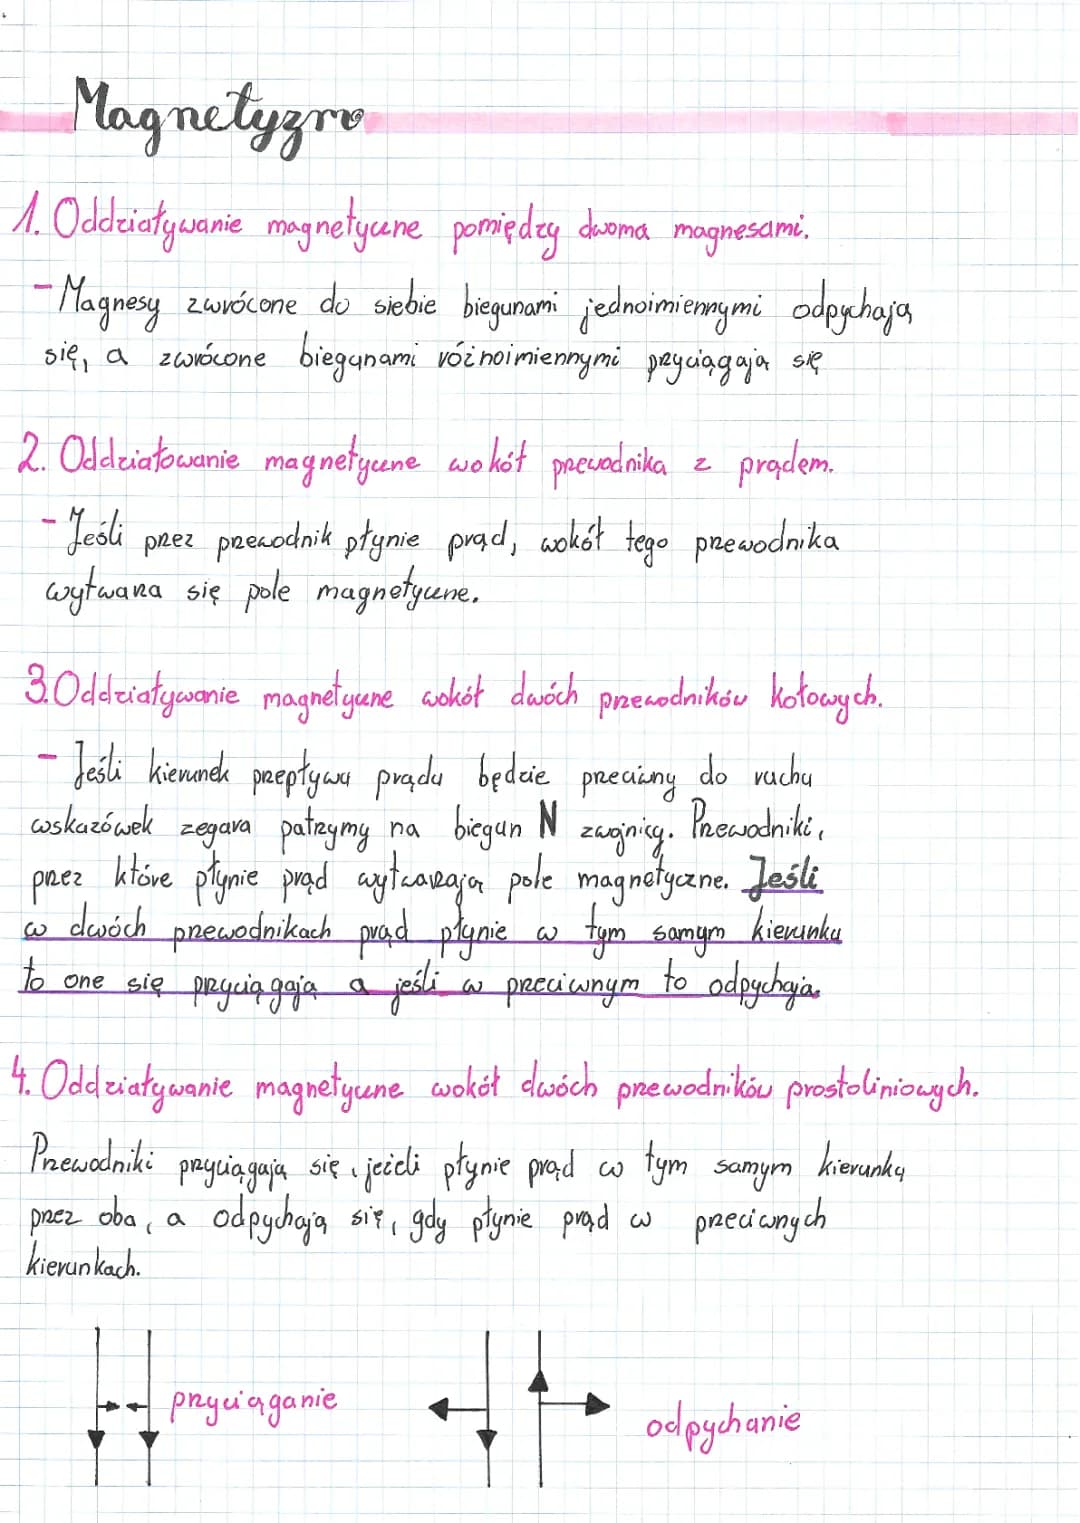 Magnetyzm
1. Oddziaływanie magnetyczne pomiędzy dwoma magnesami.
- Magnesy zwrócone do siebie biegunami jednoimiennymi odpychają
się, a zwrócone biegunami różnoimiennymi przyciągają się
2. Oddziałowanie magnetyczne wokół przewodnika z prądem.
- Jeśli przez przewodnik płynie prąd, wokół tego przewodnika
wytwarza się pole magnetyczne.
3. Oddziaływanie magnetyczne wokół dwóch przewodników kołowych.
- Jeśli kierunek przepływu prądu będzie przeciwny do ruchu
wskazówek zegara patrzymy na biegun N zwojnicy. Przewodniki,
przez które płynie prąd wytwarzają pole magnetyczne. Jeśli
w dwóch przewodnikach prąd płynie w tym samym kierunku
to one się przyciągają a jeśli w przeciwnym to odpychają.
4. Oddziaływanie magnetyczne wokół dwóch przewodników prostoliniowych.
Przewodniki przyciągają się, jeżeli płynie prąd w tym samym kierunku
przez oba, a odpychają się, gdy płynie prąd w przeciwnych
kierunkach.
przyciąganie
odpychanie